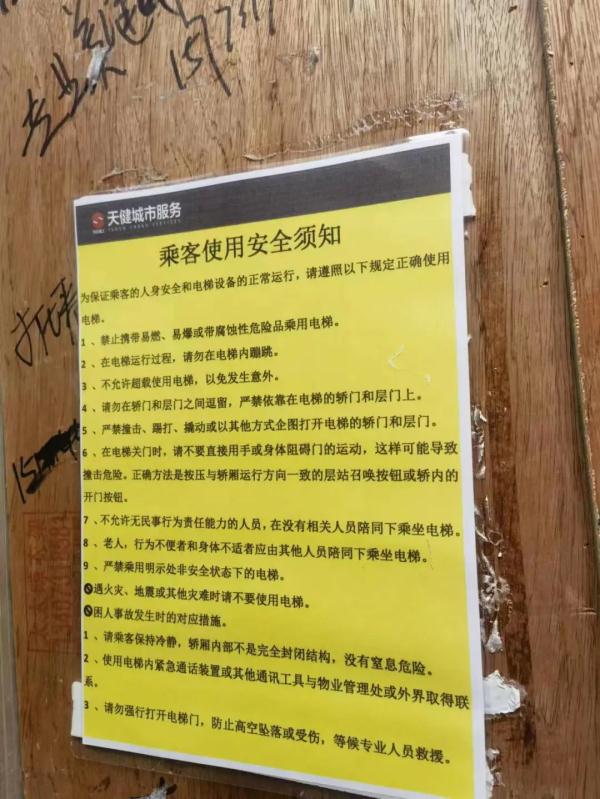 专业
天健城市服务
乘客使用安全须知
为保证乘客的人身安全和电梯设备的正常运行，请遵照以下规定正确使用
电梯。
1、禁止携带易燃、易爆或带腐蚀性危险品乘用电梯。
2、在电梯运行过程，请勿在电梯内蹦跳。
3、不允许超载使用电梯，以免发生意外。
4、请勿在轿门和层门之间逗留，严禁依靠在电梯的轿门和层门上。
5、严禁撞击、踢打、撬动或以其他方式企图打开电梯的轿门和层门。
6、在电梯关门时，请不要直接用手或身体阻碍门的运动，这样可能导致
撞击危险。正确方法是按压与轿厢运行方向一致的层站召唤按钮或轿内的
开门按钮。
7、不允许无民事行为责任能力的人员，在没有相关人员陪同下乘坐电梯。
8、老人，行为不便者和身体不适者应由其他人员陪同下乘坐电梯。
9、严禁乘用明示处非安全状态下的电梯。
遇火灾、地震或其他灾难时请不要使用电梯。
困人事故发生时的对应措施。
1、请乘客保持冷静，轿厢内部不是完全封闭结构，没有窒息危险。
2、使用电梯内紧急通话装置或其他通讯工具与物业管理处或外界取得联
系。
3、请勿强行打开电梯门，防止高空坠落或受伤，等候专业人员救援。